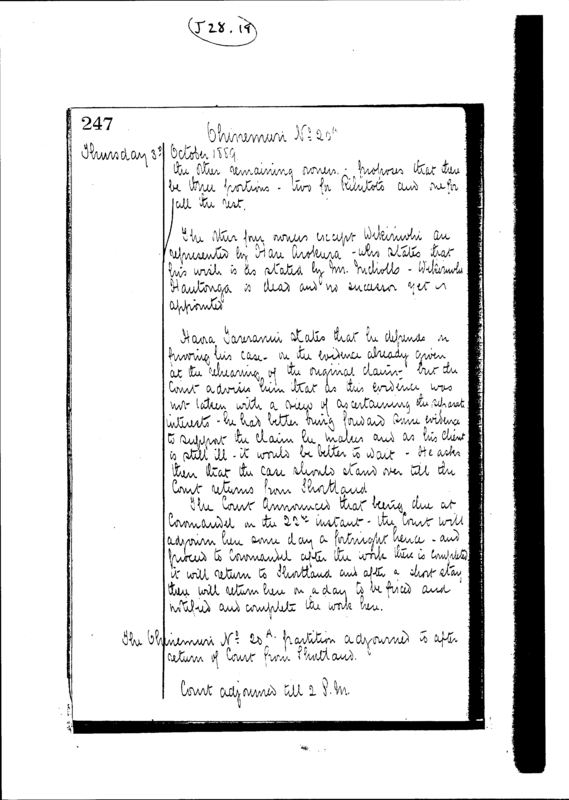 J 28.19
247
Ohinemuri No. 20A
Thursday 3rd October 1889
the other remaining owners. - proposes that there
be three portions - two for Rihitoto and one for
all the rest.
The other four owners except Wikiriwhi are
represented by Hare - who states that
his wish is as stated by Mr. Nicholls - Wikiriwhi
Hautonga is dead and no successor yet is
appointed
states that he depends in
proving his case - on the evidence already given
at the rehearing of the original claim - but the
Court advises him that as this evidence was
not taken with a view of ascertaining the separate
interests - he had better bring forward some evidence
to support the claim he makes and as his client
is still ill - it would be better to wait - He asks
then that the case should stand over till the
Court returns from Shortland
The Court Announced that being due at
Coromandel on the 22nd instant - the Court will
adjourn here some day a fortnight hence - and
proceed to Coromandel after the work there is completed
it will return to Shortland and after a short stay
there will return here on a day to be fixed and
notified and complete the work here.
The Ohinemuri No. 20A partition adjourned to after
return of Court from Shortland.
Court adjourned till 2 P.M.